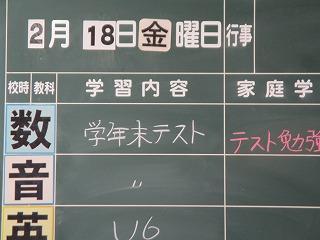 2月 18日 金 曜日 行事
校時 教科 学習内容 家庭学
数 学年末テスト テスト勉強
音 〃
英 U6